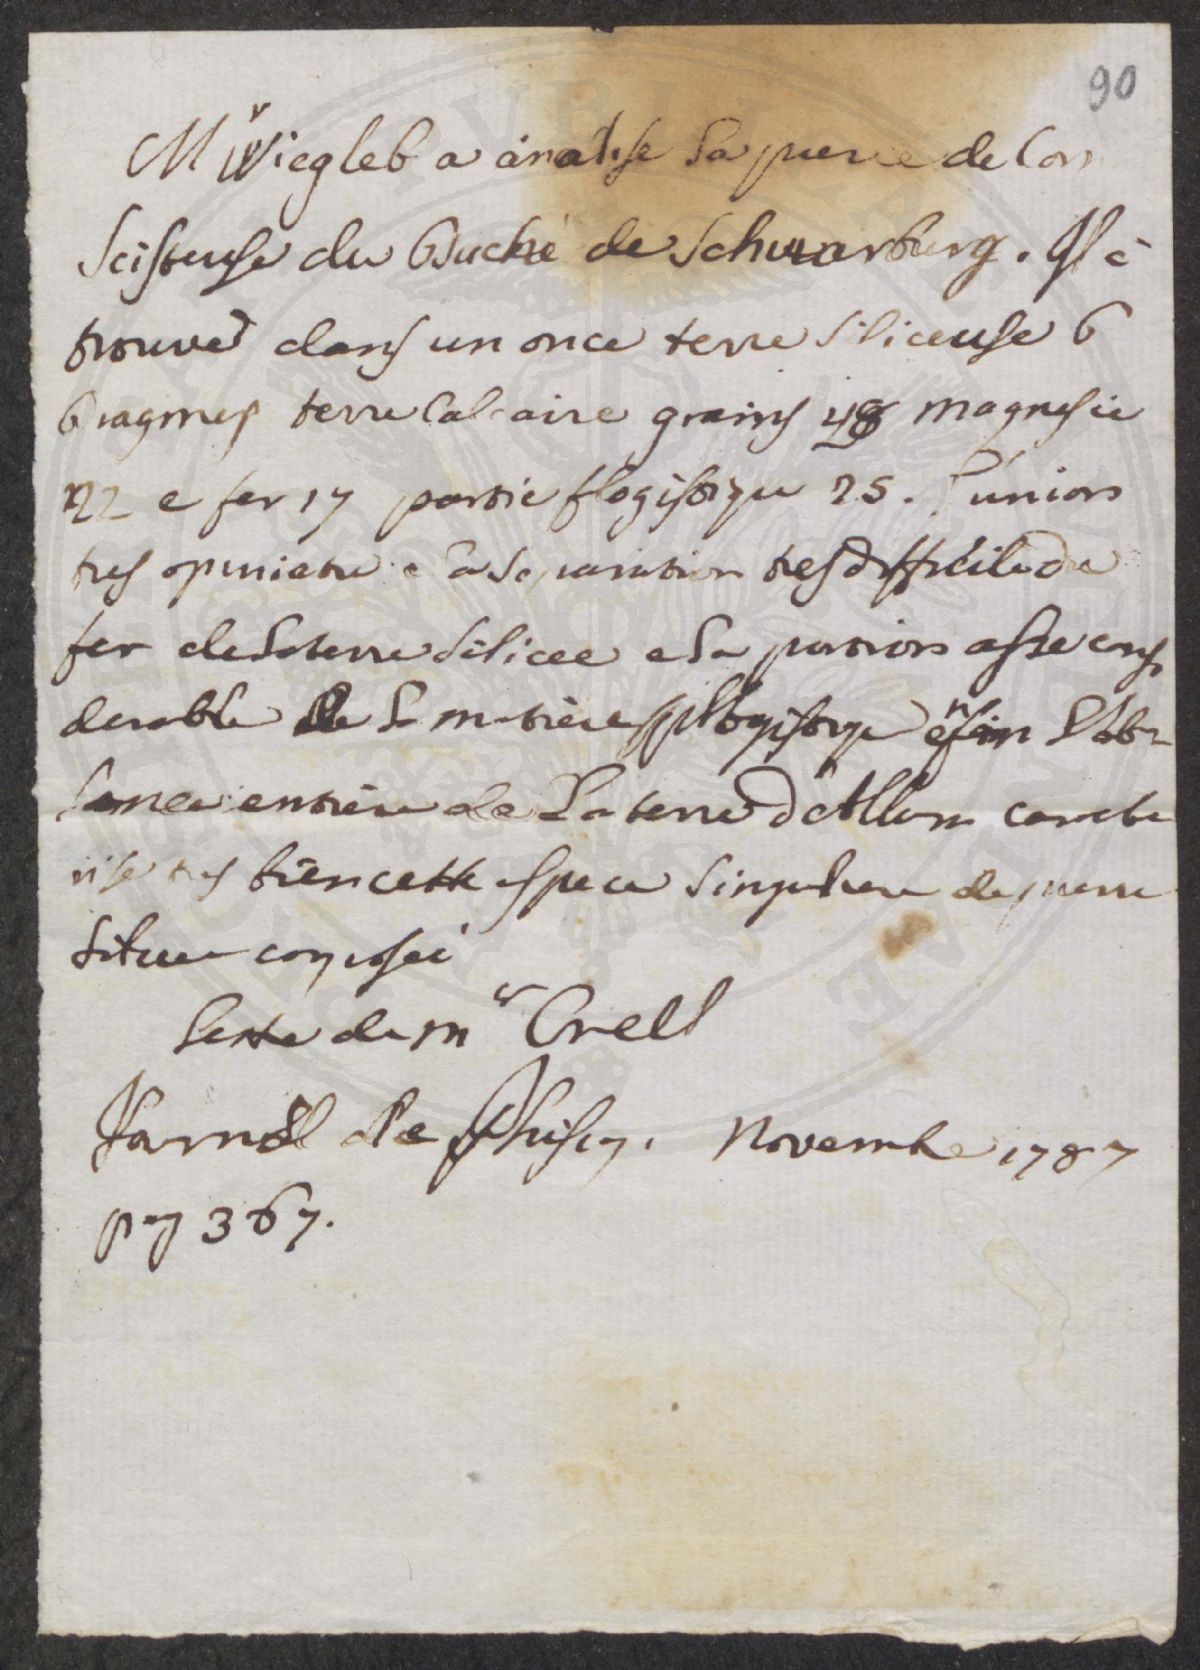 90
Mr Wiegleb a analise La pierre de Corn
Scisteuse du Duché de Schwarburg. Il a
trouve dans un once terre Siliceuse 6
Dragmes terre Calcaire grains 18 magnesie
22 e fer 17 partie flogistiqu 25. L'union
tres opiniatre e La Separation tres difficile du
fer de La terre Silicee e La portion asse consi
derable de La matiere phlogistiqe enfin L'ab
sence entiere de La terre d'Allun caracte
rise tres bien cette espece Singuliere de pierre
composée
Lettre de Mr Crell
Jarnal de Phisiq. Novembre 1787
pag 367.